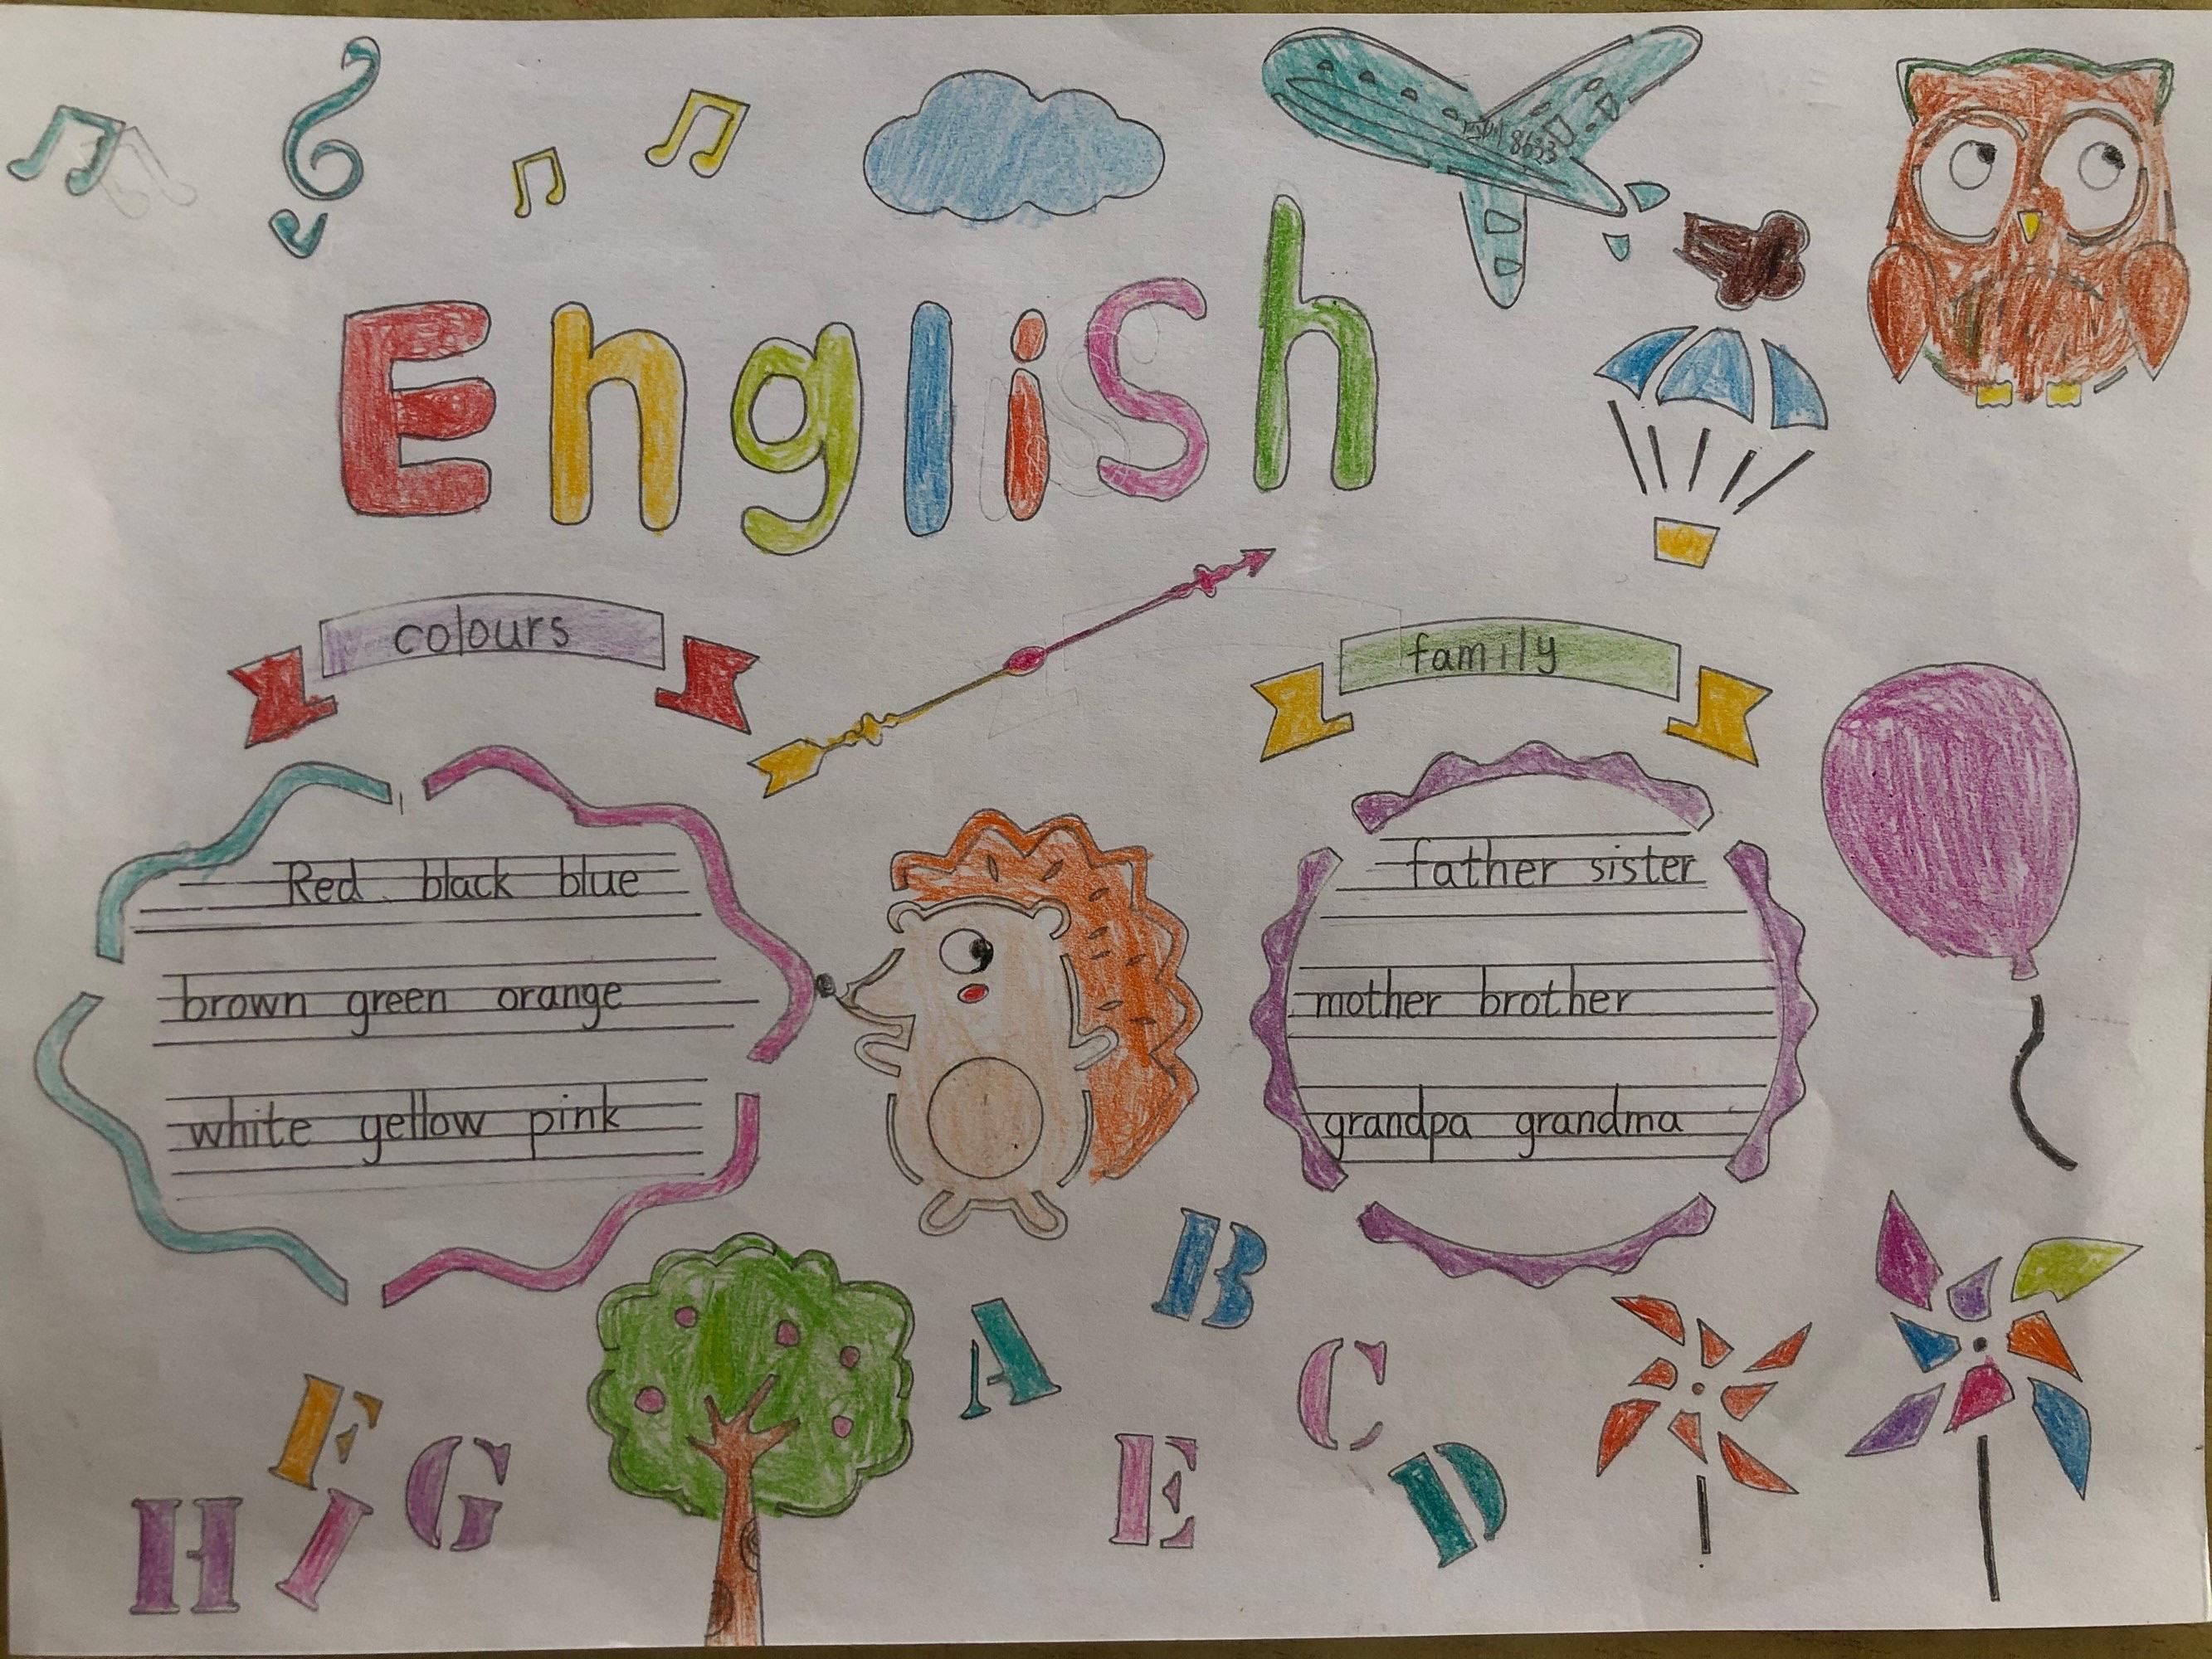 English
colours
Red black blue
brown green orange
white yellow pink
family
father sister
mother brother
grandpa grandma
A
B
C
D
E
F
G
H
I